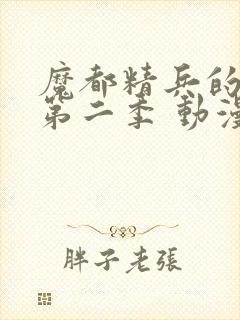 魔都精兵的
第二季 動漫
胖子老張